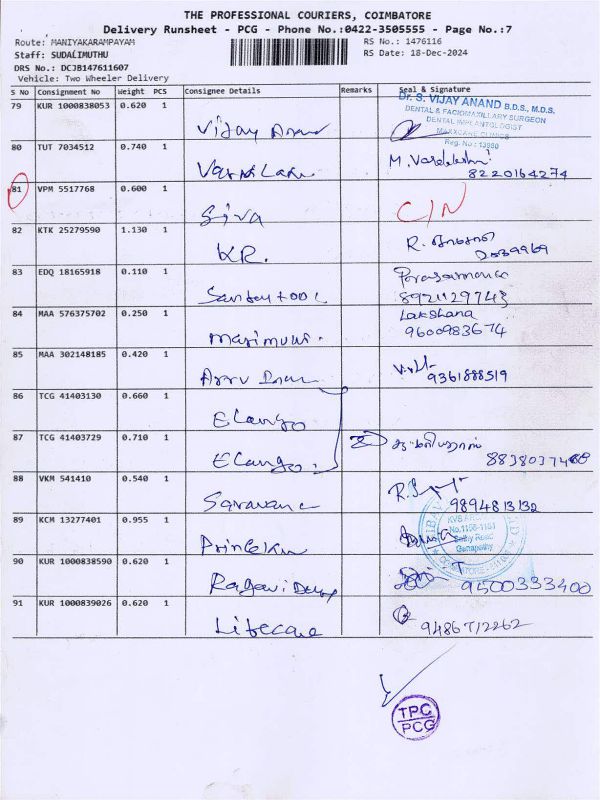 THE PROFESSIONAL COURIERS, COIMBATORE
Delivery Runsheet - PCG - Phone No.:0422-3505555 - Page No.:7
Route: MANIYAKARAMPAYAM
RS No.: 1476116
Staff: SUDALIMUTHU
RS Date: 18-Dec-2024
DRS No.: DCJB147611607
Vehicle: Two Wheeler Delivery
S No Consignment No Weight PCS Consignee Details Remarks Seal & Signature
79 KUR 1000838053 0.620 1 Vijay Anand
Dr. S. VIJAY ANAND B.D.S., M.D.S.
DENTAL & FACIOMAXILLARY SURGEON
DENTAL IMPLANTOLOGIST
MAXXCARE CLINICS
Reg. No : 13980
80 TUT 7034512 0.740 1
8220164274
81 VPM 5517768 0.600 1 Siva C/N
82 KTK 25279590 1.130 1 KR. R.
83 EDQ 18165918 0.110 1
8921129743
84 MAA 576375702 0.250 1 Lakshana
9600983674
85 MAA 302148185 0.420 1
9361888519
86 TCG 41403130 0.660 1 Elango
87 TCG 41403729 0.710 1 Elango
88 VKM 541410 0.540 1
9894813132
89 KCM 13277401 0.955 1
No.1156-1161
Sathy Road
Ganapathy
90 KUR 1000838590 0.620 1
9500333400
91 KUR 1000839026 0.620 1 Lifecare
9486712262
TPC
PCG